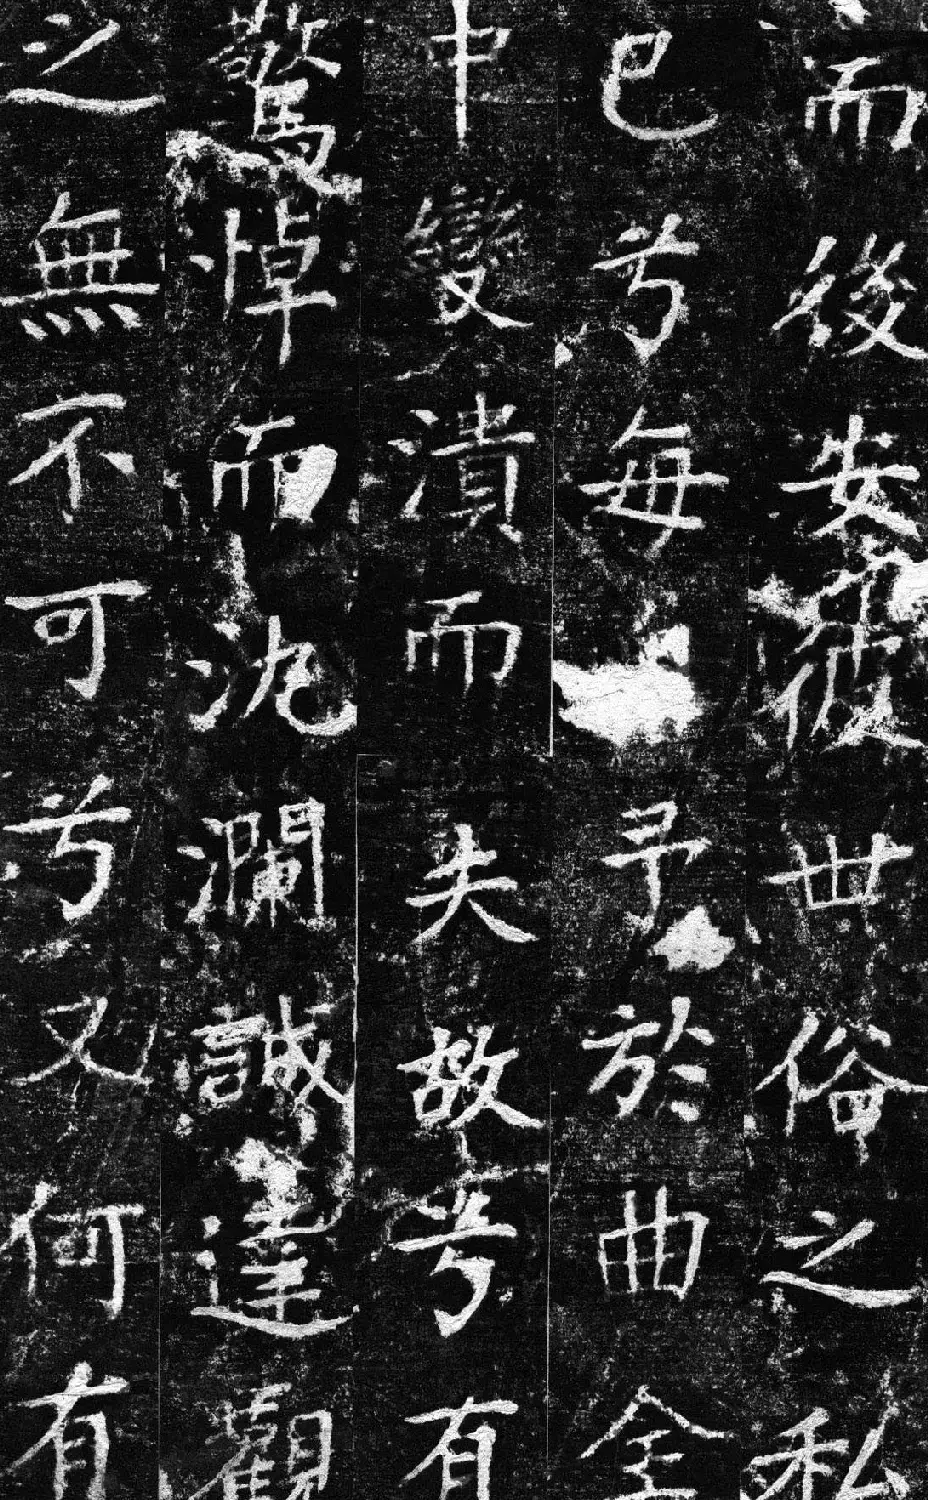 而後安彼世俗之私
已兮每予於曲全
中變潰而失故兮有
驚悼而沈瀾誠達觀
之無不可兮又何有